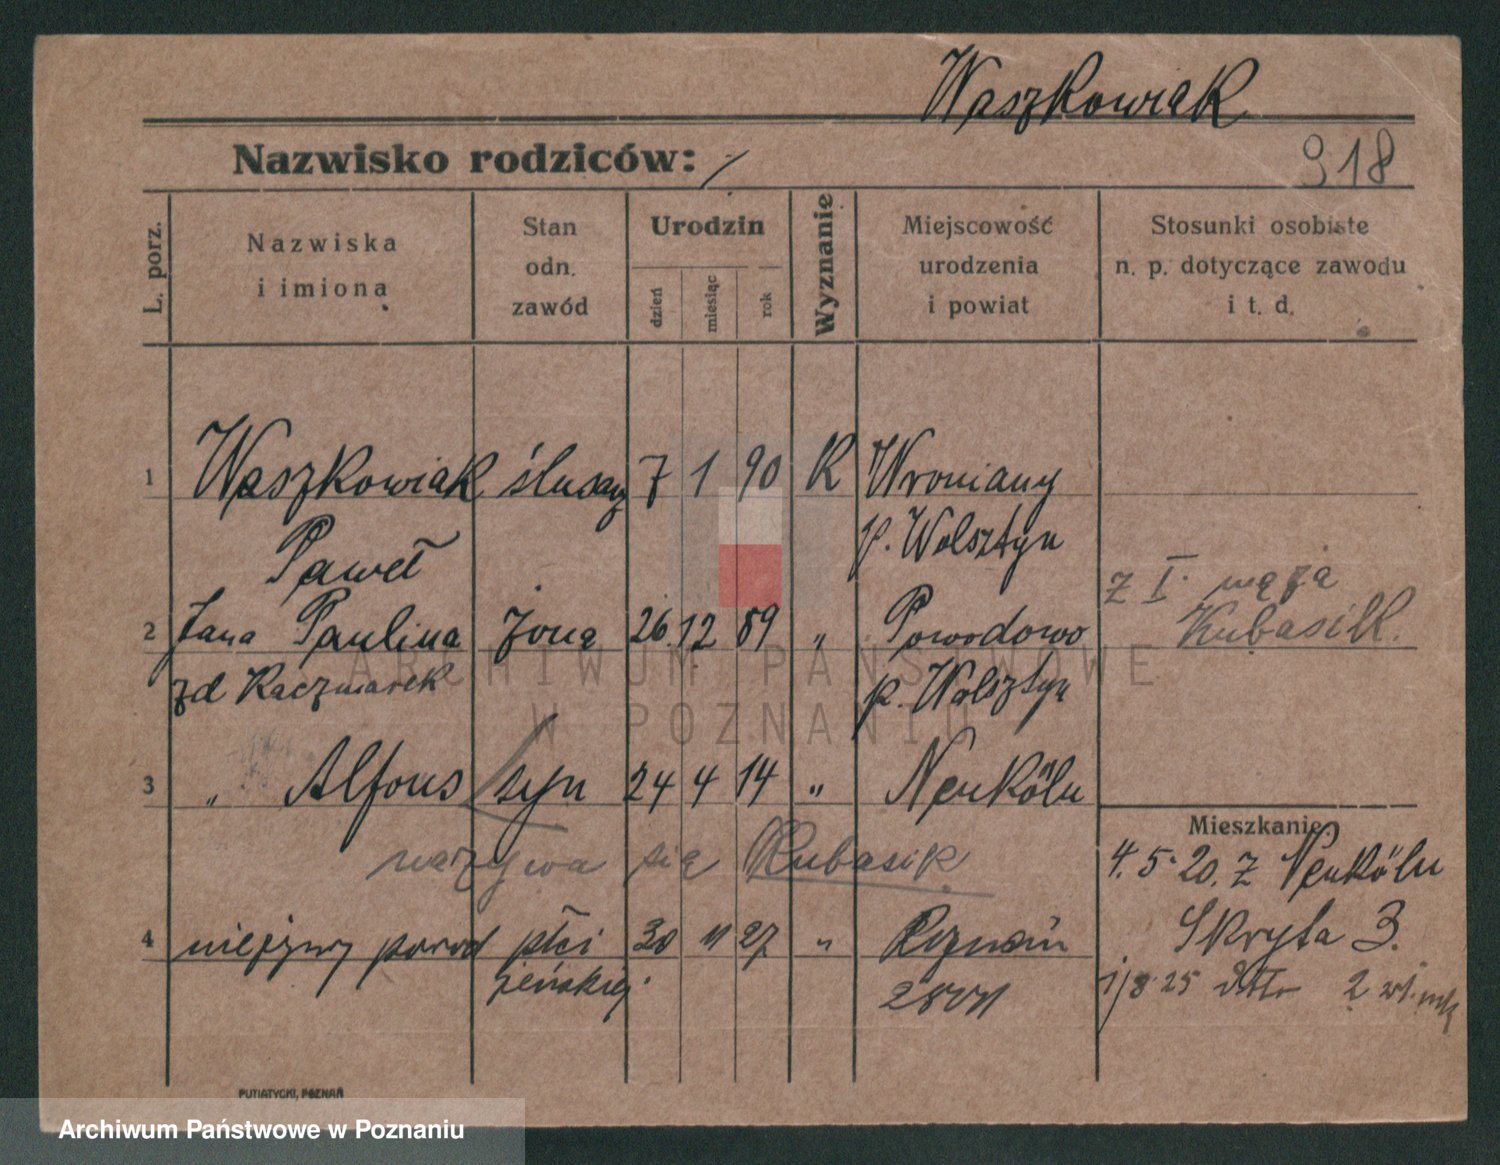 Waszkowiak
Nazwisko rodziców: /
918
L. porz.
Nazwiska
i imiona
Stan
odn.
zawód
Urodzin
dzień
miesiąc
rok
Wyznanie
Miejscowość
urodzenia
i powiat
Stosunki osobiste
n. p. dotyczące zawodu
i t. d.
1 Waszkowiak ślusarz 7 1 90 K Wroniany
Paweł p. Wolsztyn
z I. męża
2 żana Paulina żona 26. 12 89 „ Powodowo Kubasik.
zd Kaczmarek p. Wolsztyn
3 „ Alfons syn 24 4 14 „ Neukölln
nazywa się Kubasik.
Mieszkanie:
4. 5. 20. z Neukölln
4 nieżywy poród płci 30 11 27 „ Poznań Skryta 3.
żeńskiej.
1/8 25 2
PUTIATYCKI, POZNAŃ
ARCHIWUM PAŃSTWOWE
W POZNANIU
Archiwum Państwowe w Poznaniu